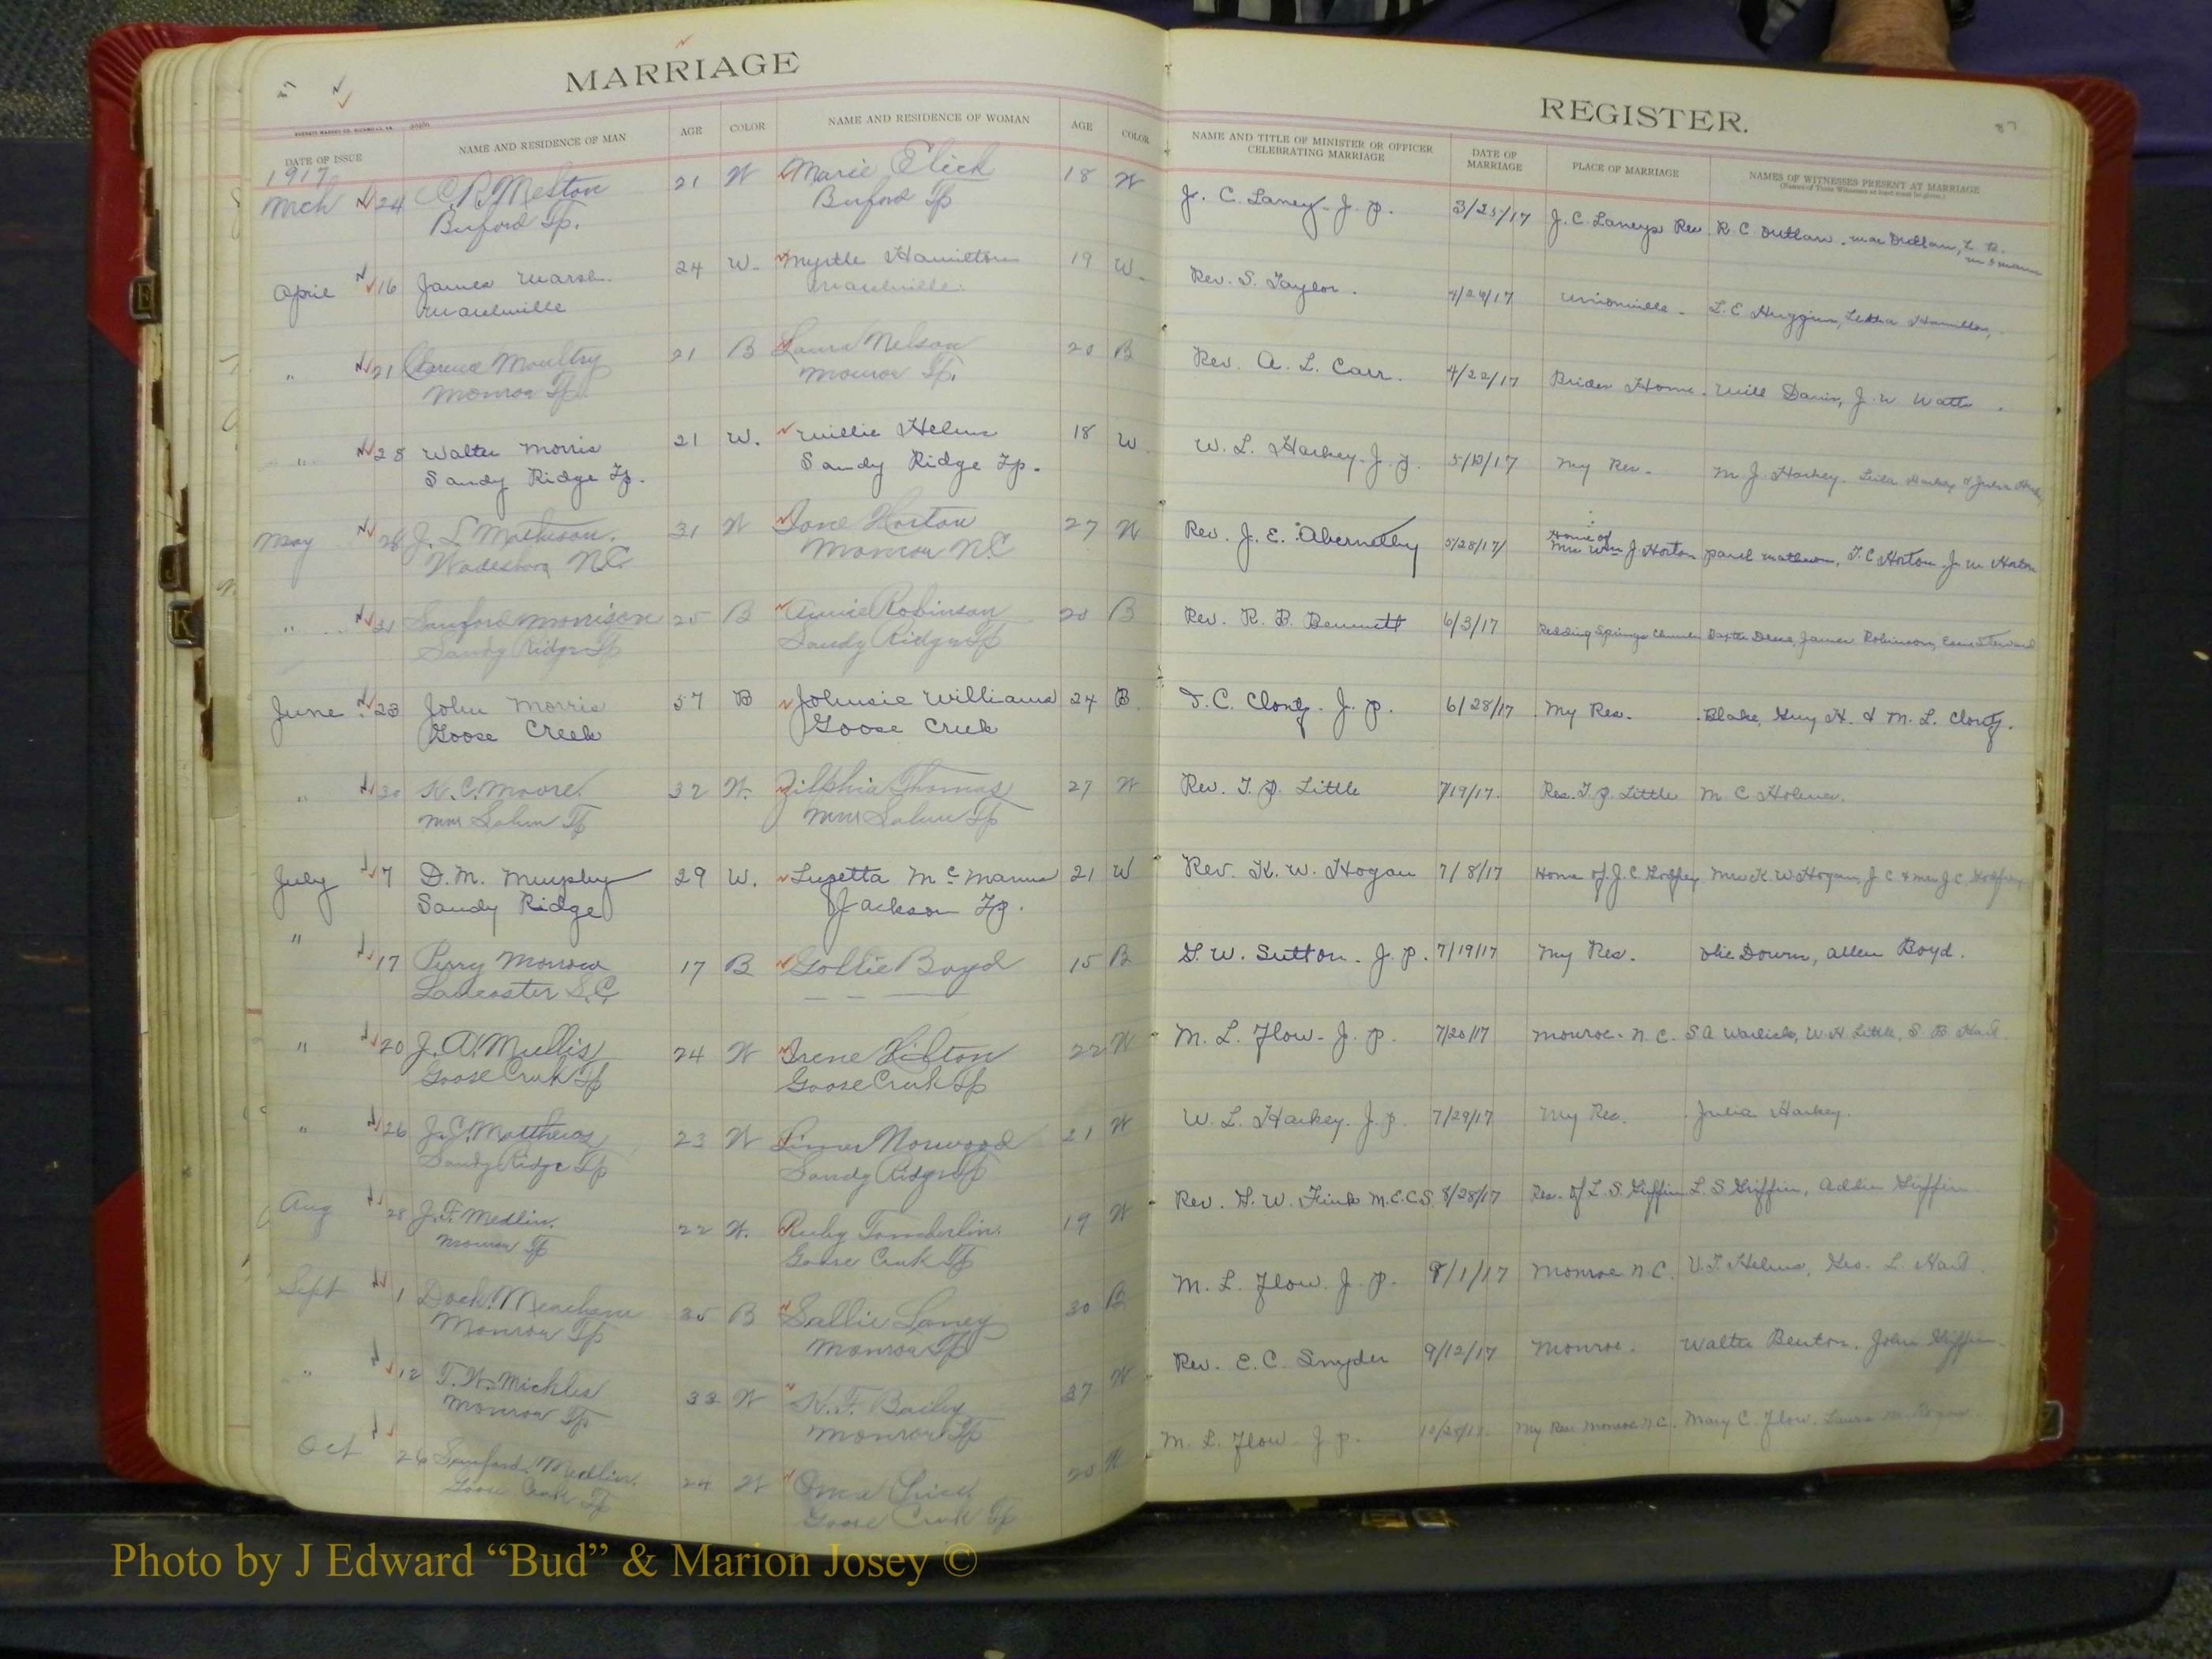 MARRIAGE
DATE OF ISSUE NAME AND RESIDENCE OF MAN AGE COLOR NAME AND RESIDENCE OF WOMAN AGE COLOR
1917
Mch 24 C. R. Meston 21 W Marie Elick 18 W
Buford Tp. Buford Tp
April 16 James Marsh 24 W. Myrtle Hamilton 19 W
Marshville Marshville
" 21 Moultry 21 B Laura Nelson 20 B
Monroe Tp. Monroe Tp.
" 28 Walter Morris 21 W. Willie Helms 18 W
Sandy Ridge Tp. Sandy Ridge Tp.
May 26 J. L. Matheson. 31 W Ione Horton 27 W
Wadesboro N.C. Monroe N.C.
" 31 Sanford Morrison 25 B Annie Robinson 20 B
Sandy Ridge Tp Sandy Ridge Tp
June 23 John Morris 57 B Johnsie Williams 24 B
Goose Creek Goose Creek
" 30 K. C. Moore 32 W. Zilphia Thomas 27 W
New Salem Tp New Salem Tp
July 7 D. M. Murphy 29 W. Luzetta McManus 21 W
Sandy Ridge Jackson Tp.
" 17 Perry Morrow 17 B Gollie Boyd 15 B
Lancaster S.C.
" 20 J. A. Mullis 24 W Irene Hilton 22 W
Goose Creek Tp Goose Creek Tp
" 26 J. C. Matthews 23 W Norwood 21 W
Sandy Ridge Tp Sandy Ridge Tp
Aug 28 J. F. Medlin. 22 W. Ruby Tomberlin. 19 W
Monroe Tp Goose Creek Tp
Sept 1 Dock Meacham 35 B Sallie Laney 30 B
Monroe Tp Monroe Tp
" 12 T. W. Mickles 33 W K. F. Bailey 37 W
Monroe Tp Monroe Tp
Oct 26 Sanford Medlin. 24 W Price 20 W
Goose Creek Tp Goose Creek Tp
REGISTER.
87
NAME AND TITLE OF MINISTER OR OFFICER CELEBRATING MARRIAGE DATE OF MARRIAGE PLACE OF MARRIAGE NAMES OF WITNESSES PRESENT AT MARRIAGE
(Names of Three Witnesses at least must be given.)
J. C. Laney. J. P. 3/25/17 J. C. Laneys Res R. C. Outlaw.
Rev. S. Taylor. 4/26/17 Unionville. L. E. Huggins, Letha Hamilton,
Rev. A. L. Carr. 4/22/17 Brides Home. Will Davis, J. W. Watts.
W. L. Harkey. J. P. 5/13/17 My Res. M. J. Harkey.
Rev. J. E. Abernethy 5/28/17 Home of Mrs Wm J Horton T. C. Horton. J. W. Horton
Rev. R. B. Bennett 6/3/17 Redding Springs Church James Robinson,
T. C. Clontz. J. P. 6/28/17 My Res. Blake, Guy H. & M. L. Clontz.
Rev. T. P. Little 7/19/17. Res. T. P. Little M. C. Holmes.
Rev. K. W. Hogan 7/8/17 Home of J. C. Godfrey Mrs K. W. Hogan, J. C. & Mrs J. C. Godfrey
G. W. Sutton. J. P. 7/19/17 My Res. Allen Boyd.
M. L. Flow. J. P. 7/20/17 Monroe. N. C. S. A. Warlick, W. H. Little, S. B. Hart
W. L. Harkey. J. P. 7/29/17 My Res. Julia Harkey.
Rev. G. W. Fink M.E.C.S. 8/28/17 Res. of L. S. Griffin L. S. Griffin, Addie Griffin
M. L. Flow. J. P. 9/1/17 Monroe N. C. V. T. Helms, Geo. L. Hart
Rev. E. C. Snyder 9/12/17 Monroe. Walter Benton. John Griffin
M. L. Flow. J. P. My Res Monroe N.C. Mary C. Flow.
Photo by J Edward “Bud” & Marion Josey ©